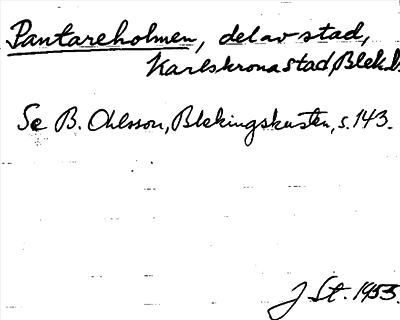 Pantareholmen, del av stad,
Karlskrona stad, Blek.l.
Se B. Ohlsson, Blekingskusten, s. 143.
J St. 1953.